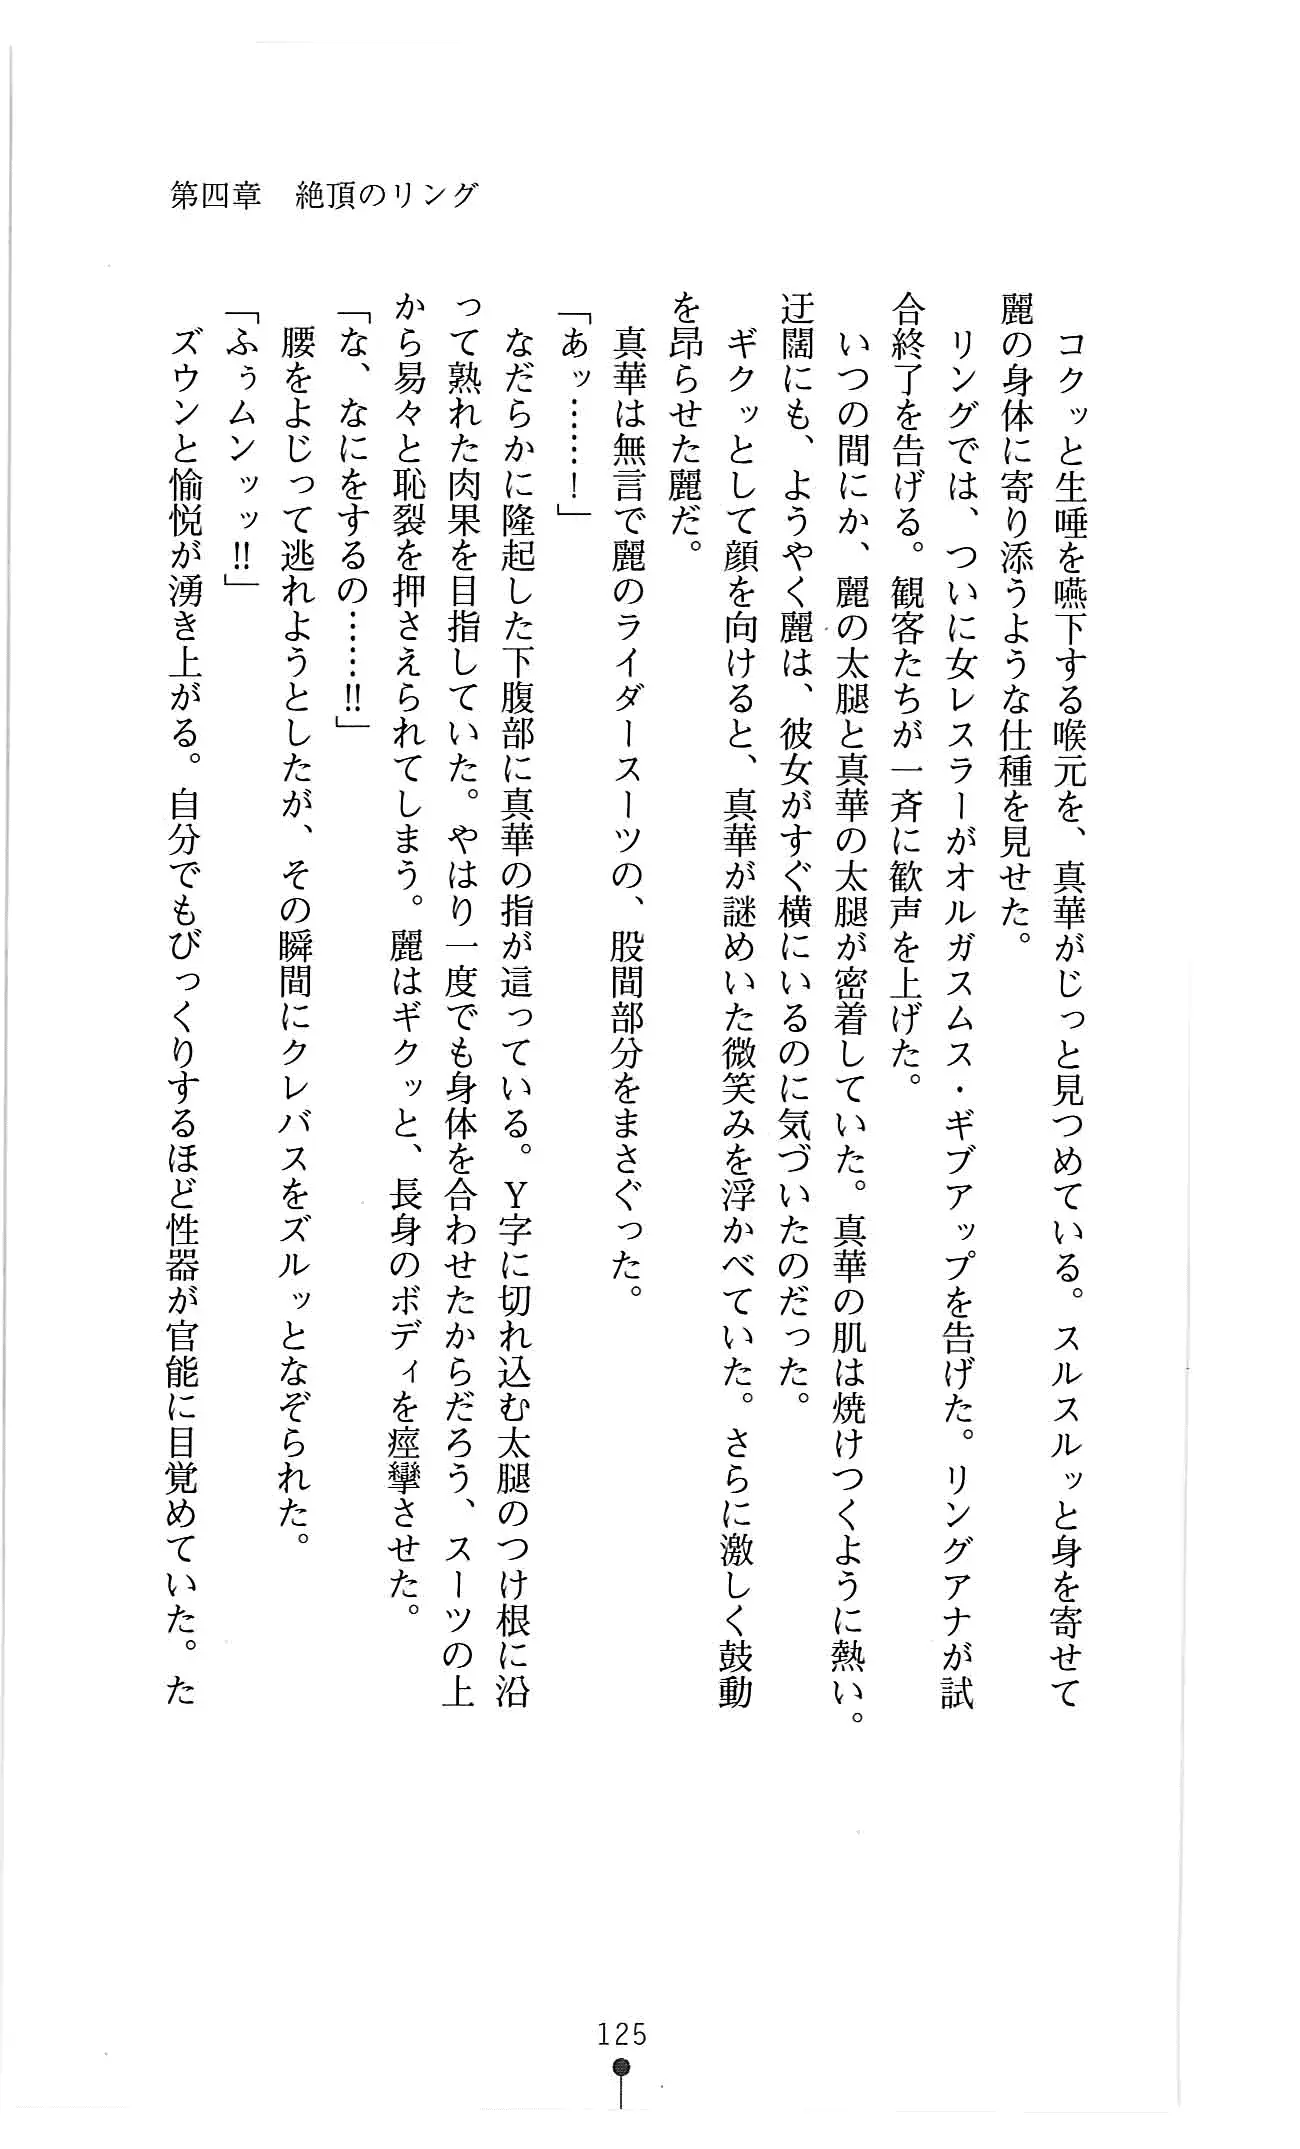 第四章　絶頂のリング
コクッと生唾を嚥下する喉元を、真華がじっと見つめている。スルスルッと身を寄せて
麗の身体に寄り添うような仕種を見せた。
リングでは、ついに女レスラーがオルガスムス・ギブアップを告げた。リングアナが試
合終了を告げる。観客たちが一斉に歓声を上げた。
いつの間にか、麗の太腿と真華の太腿が密着していた。真華の肌は焼けつくように熱い。
迂闊にも、ようやく麗は、彼女がすぐ横にいるのに気づいたのだった。
ギクッとして顔を向けると、真華が謎めいた微笑みを浮かべていた。さらに激しく鼓動
を昂らせた麗だ。
真華は無言で麗のライダースーツの、股間部分をまさぐった。
「あッ……！」
なだらかに隆起した下腹部に真華の指が這っている。Ｙ字に切れ込む太腿のつけ根に沿
って熟れた肉果を目指していた。やはり一度でも身体を合わせたからだろう、スーツの上
から易々と恥裂を押さえられてしまう。麗はギクッと、長身のボディを痙攣させた。
「な、なにをするの……!!」
腰をよじって逃れようとしたが、その瞬間にクレバスをズルッとなぞられた。
「ふぅムンッッ!!」
ズウンと愉悦が湧き上がる。自分でもびっくりするほど性器が官能に目覚めていた。た
125